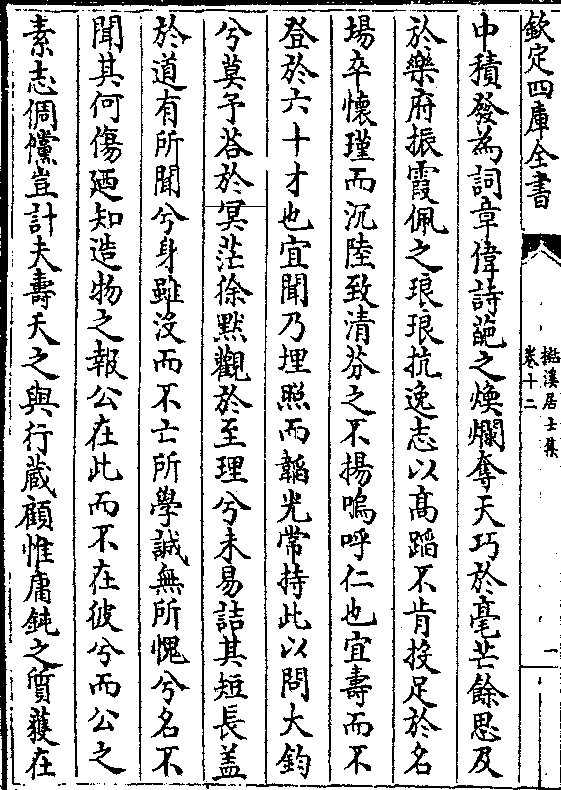 欽定四庫全書
㮤溪居士集
卷十二
一
中積發為詞章偉詩葩之煥爛奪天巧於毫芒餘思及
於樂府振霞佩之琅琅抗逸志以高蹈不肯投足於名
場卒懷瑾而沉陸致清芬之不揚嗚呼仁也宜壽而不
登於六十才也宜聞乃埋照而韜光常持此以問大鈞
兮莫予荅於冥茫徐黙觀於至理兮未易詰其短長盖
於道有所聞兮身雖没而不亡所學誠無所愧兮名不
聞其何傷廼知造物之報公在此而不在彼兮而公之
素志倜儻豈計夫壽夭之與行藏顧惟庸鈍之質獲在